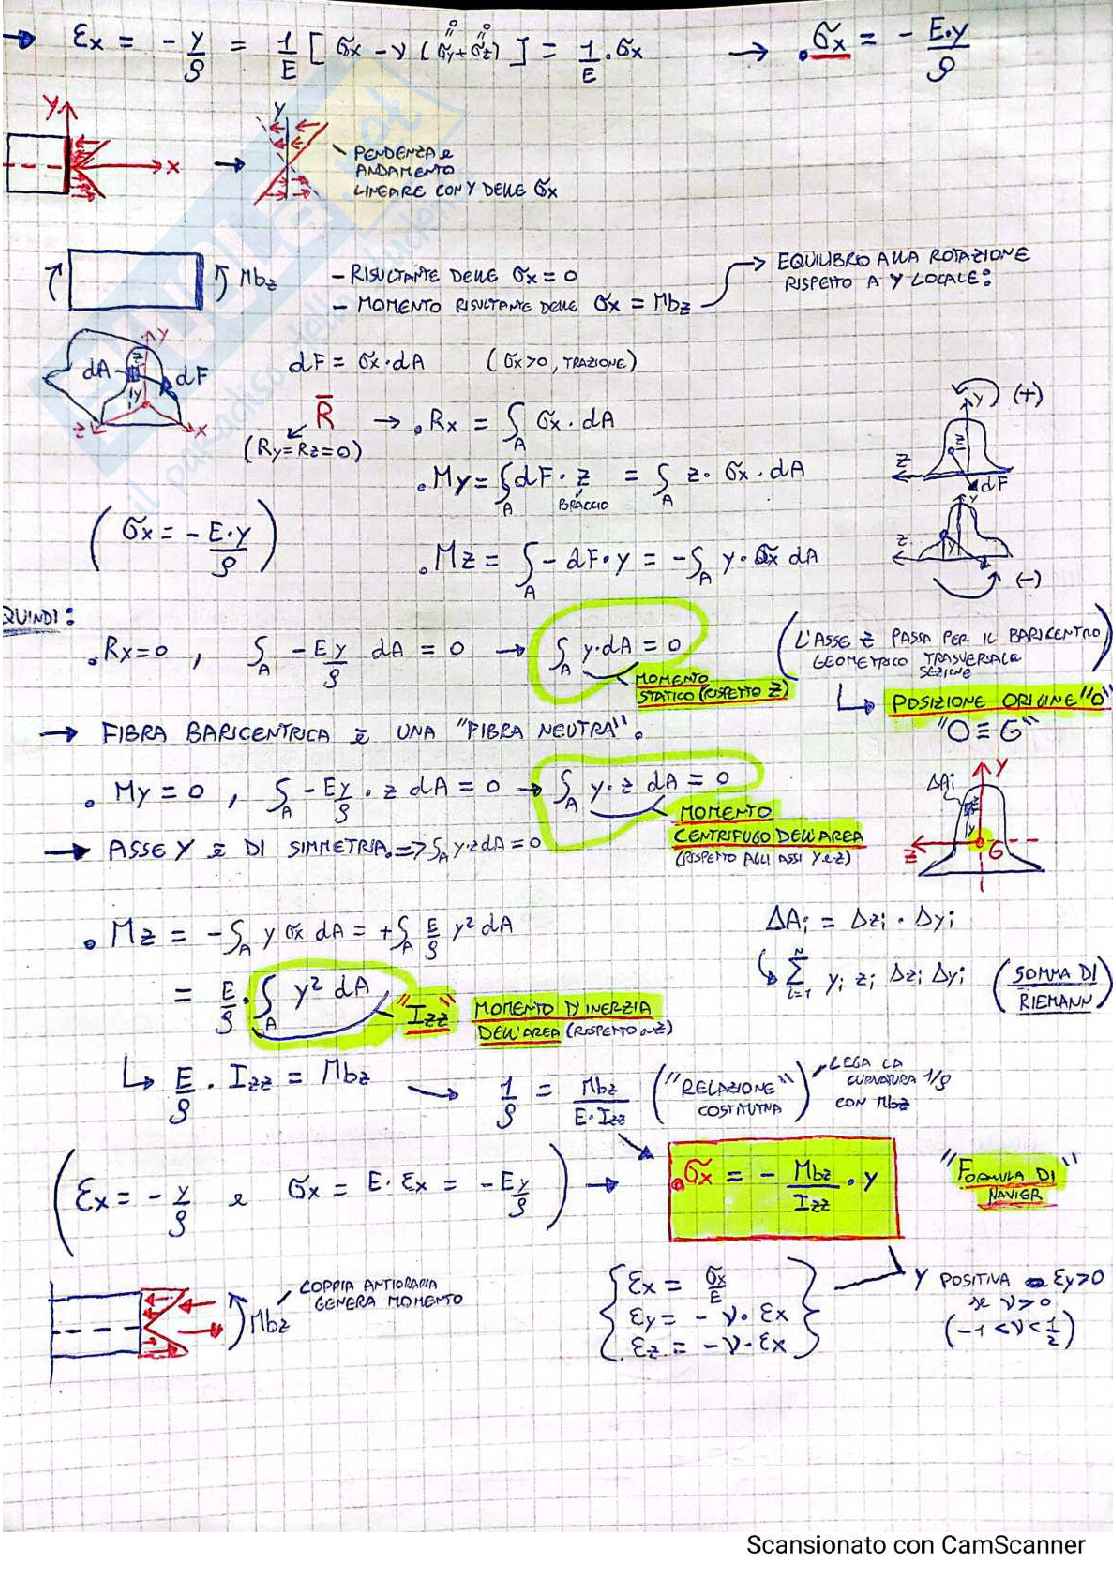 → εx = - y/ρ = 1/E [ σx - ν (σy + σz) ] = 1/E · σx → σx = - E·y/ρ
0 0
y
x
y
PENDENZA e
ANDAMENTO
LINEARE CON Y DELLE σx
Mbz
- RISULTANTE DELLE σx = 0
- MOMENTO RISULTANTE DELLE σx = Mbz
→ EQUILIBRO ALLA ROTAZIONE
RISPETTO A Y LOCALE:
dA
dF
y
z
x
dF = σx · dA (σx>0, TRAZIONE)
R̅ → . Rx = ∫A σx · dA
(Ry=Rz=0)
. My = ∫A dF · z = ∫A z · σx · dA
BRACCIO
(σx = - E·y/ρ)
. Mz = ∫A - dF · y = - ∫A y · σx dA
y (+)
z
dF
y
z
(-)
QUINDI:
. Rx=0 , ∫A - Ey/ρ dA = 0 → ∫A y·dA = 0
MOMENTO
STATICO (RISPETTO Z)
(L'ASSE Z PASSA PER IL BARICENTRO
GEOMETRICO TRASVERSALE
SEZIONE)
↳ POSIZIONE ORIGINE "O"
"O ≡ G"
→ FIBRA BARICENTRICA è UNA "FIBRA NEUTRA".
. My = 0 , ∫A - Ey/ρ · z dA = 0 → ∫A y·z dA = 0
MOMENTO
CENTRIFUGO DELL'AREA
(RISPETTO AGLI ASSI Y e Z)
→ ASSE Y è DI SIMMETRIA. => ∫A y·z dA = 0
ΔAi
y
z
G
. Mz = - ∫A y σx dA = + ∫A E/ρ y² dA
= E/ρ · ∫A y² dA "Izz"
MOMENTO D'INERZIA
DELL'AREA (RISPETTO a Z)
ΔAi = Δzi · Δyi
↳ Σ i=1 N yi zi Δzi Δyi (SOMMA DI
RIEMANN)
↳ E/ρ · Izz = Mbz → 1/ρ = Mbz/E·Izz ("RELAZIONE"
COSTITUTIVA)
LEGA LA
CURVATURA 1/ρ
CON Mbz
(εx = - y/ρ e σx = E · εx = - Ey/ρ) → . σx = - Mbz/Izz · y
"FORMULA DI
NAVIER"
COPPIA ANTIORARIA
GENERA MOMENTO
Mbz
{ εx = σx/E
εy = - ν · εx
εz = - ν · εx }
Y POSITIVA εy>0
se ν>0
(-1<ν<1/2)
Scansionato con CamScanner